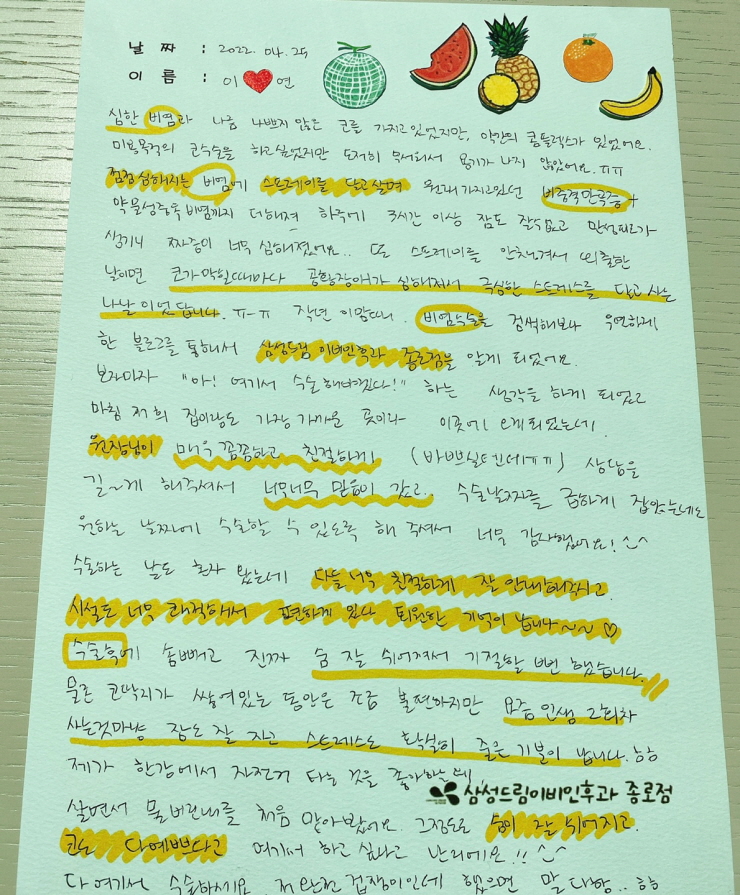 날 짜 : 2022. 04. 25
이 름 : 이 ♥ 연
심한 비염과 나름 나쁘지 않은 코를 가지고 있었지만, 약간의 콤플렉스가 있었어요.
미용목적의 코수술을 하고싶었지만 도저히 무서워서 용기가 나지 않았어요.ㅠㅠ
점점심해지는 비염에 스트레이를 달고살며 원래가지고있던 비중격만곡증+
약물성중독 비염까지 더해져 하루에 3시간 이상 잠도 잘수없고 만성피로가
생기니 짜증이 너무 심해졌었어요.. 또 스프레이를 안챙겨서 외출한
날이면 코가막힐때마다 공황장애가 심해져서 극심한 스트레스를 달고 사는
나날 이었답니다. ㅠㅠ 작년 이맘때, 비염수술을 검색해보다 우연하게
한 블로그를 통해서 삼성드림 이비인후과 종로점을 알게 되었어요.
보자마자 "아! 여기서 수술 해야겠다!" 하는 생각을 하게 되었고
마침 저희 집이랑도 가장 가까운 곳이라 이곳에 오게되었는데,
원장님이 매우 꼼꼼하고 친절하게 (바쁘실텐데ㅠㅠ) 상담을
길~게 해주셔서 너무너무 믿음이 갔고.. 수술날짜를 급하게 잡았는데도
원하는 날짜에 수술할 수 있도록 해 주셔서 너무 감사했어요! ^-^
수술하는 날도 혼자 왔는데 다들 너무 친절하게 잘 안내해주시고
시설도 너무 쾌적해서 편하게 있다 퇴원한 기억이 납니다~~♡
수술후에 솜빼고 진짜 숨 잘 쉬어져서 기절할 뻔 했습니다.
물론 코딱지가 쌓여있는 동안은 조금 불편하지만 요즘 인생 2회차
사는것마냥 잠도 잘 자고 스트레스도 확실히 줄은 기분이 납니다. ㅎㅎ
제가 한강에서 자전거 타는 것을 좋아하는데,
삼성드림이비인후과 종로점
살면서 물 비린내를 처음 맡아봤어요. 그정도로 숨이 잘 쉬어지고.
코도 다예쁘다고 여기서 하고 싶다고 난리에요!! ^-^
다 여기서 수술하세요. 저 완전 겁쟁이인데 했으면 말 다함.. ㅎㅎ